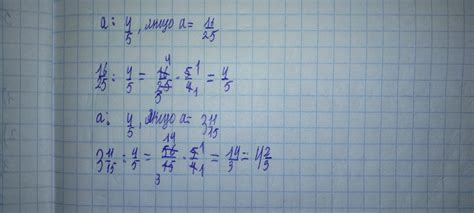 a : 4/5, якщо a = 16/25
16/25 : 4/5 = 16/25 · 5/4 = 4/5
a : 4/5, якщо a = 3 11/15
3 11/15 : 4/5 = 56/15 · 5/4 = 14/3 = 4 2/3